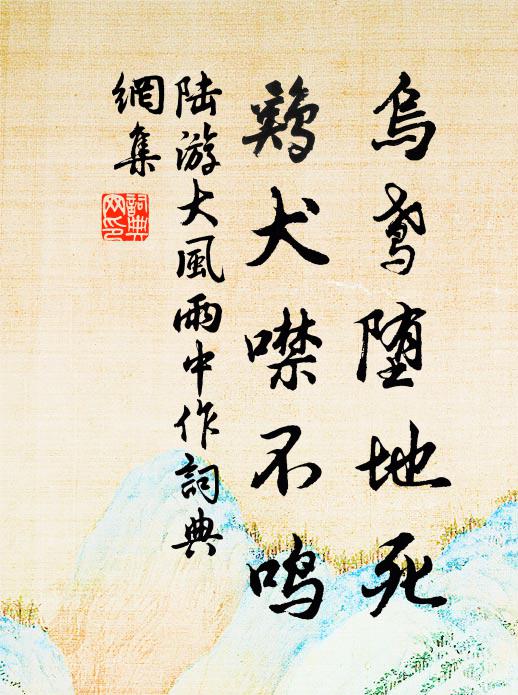 乌鸢堕地死
鸡犬噤不鸣
陆游大風雨中作詞典
網集
詞典
网印